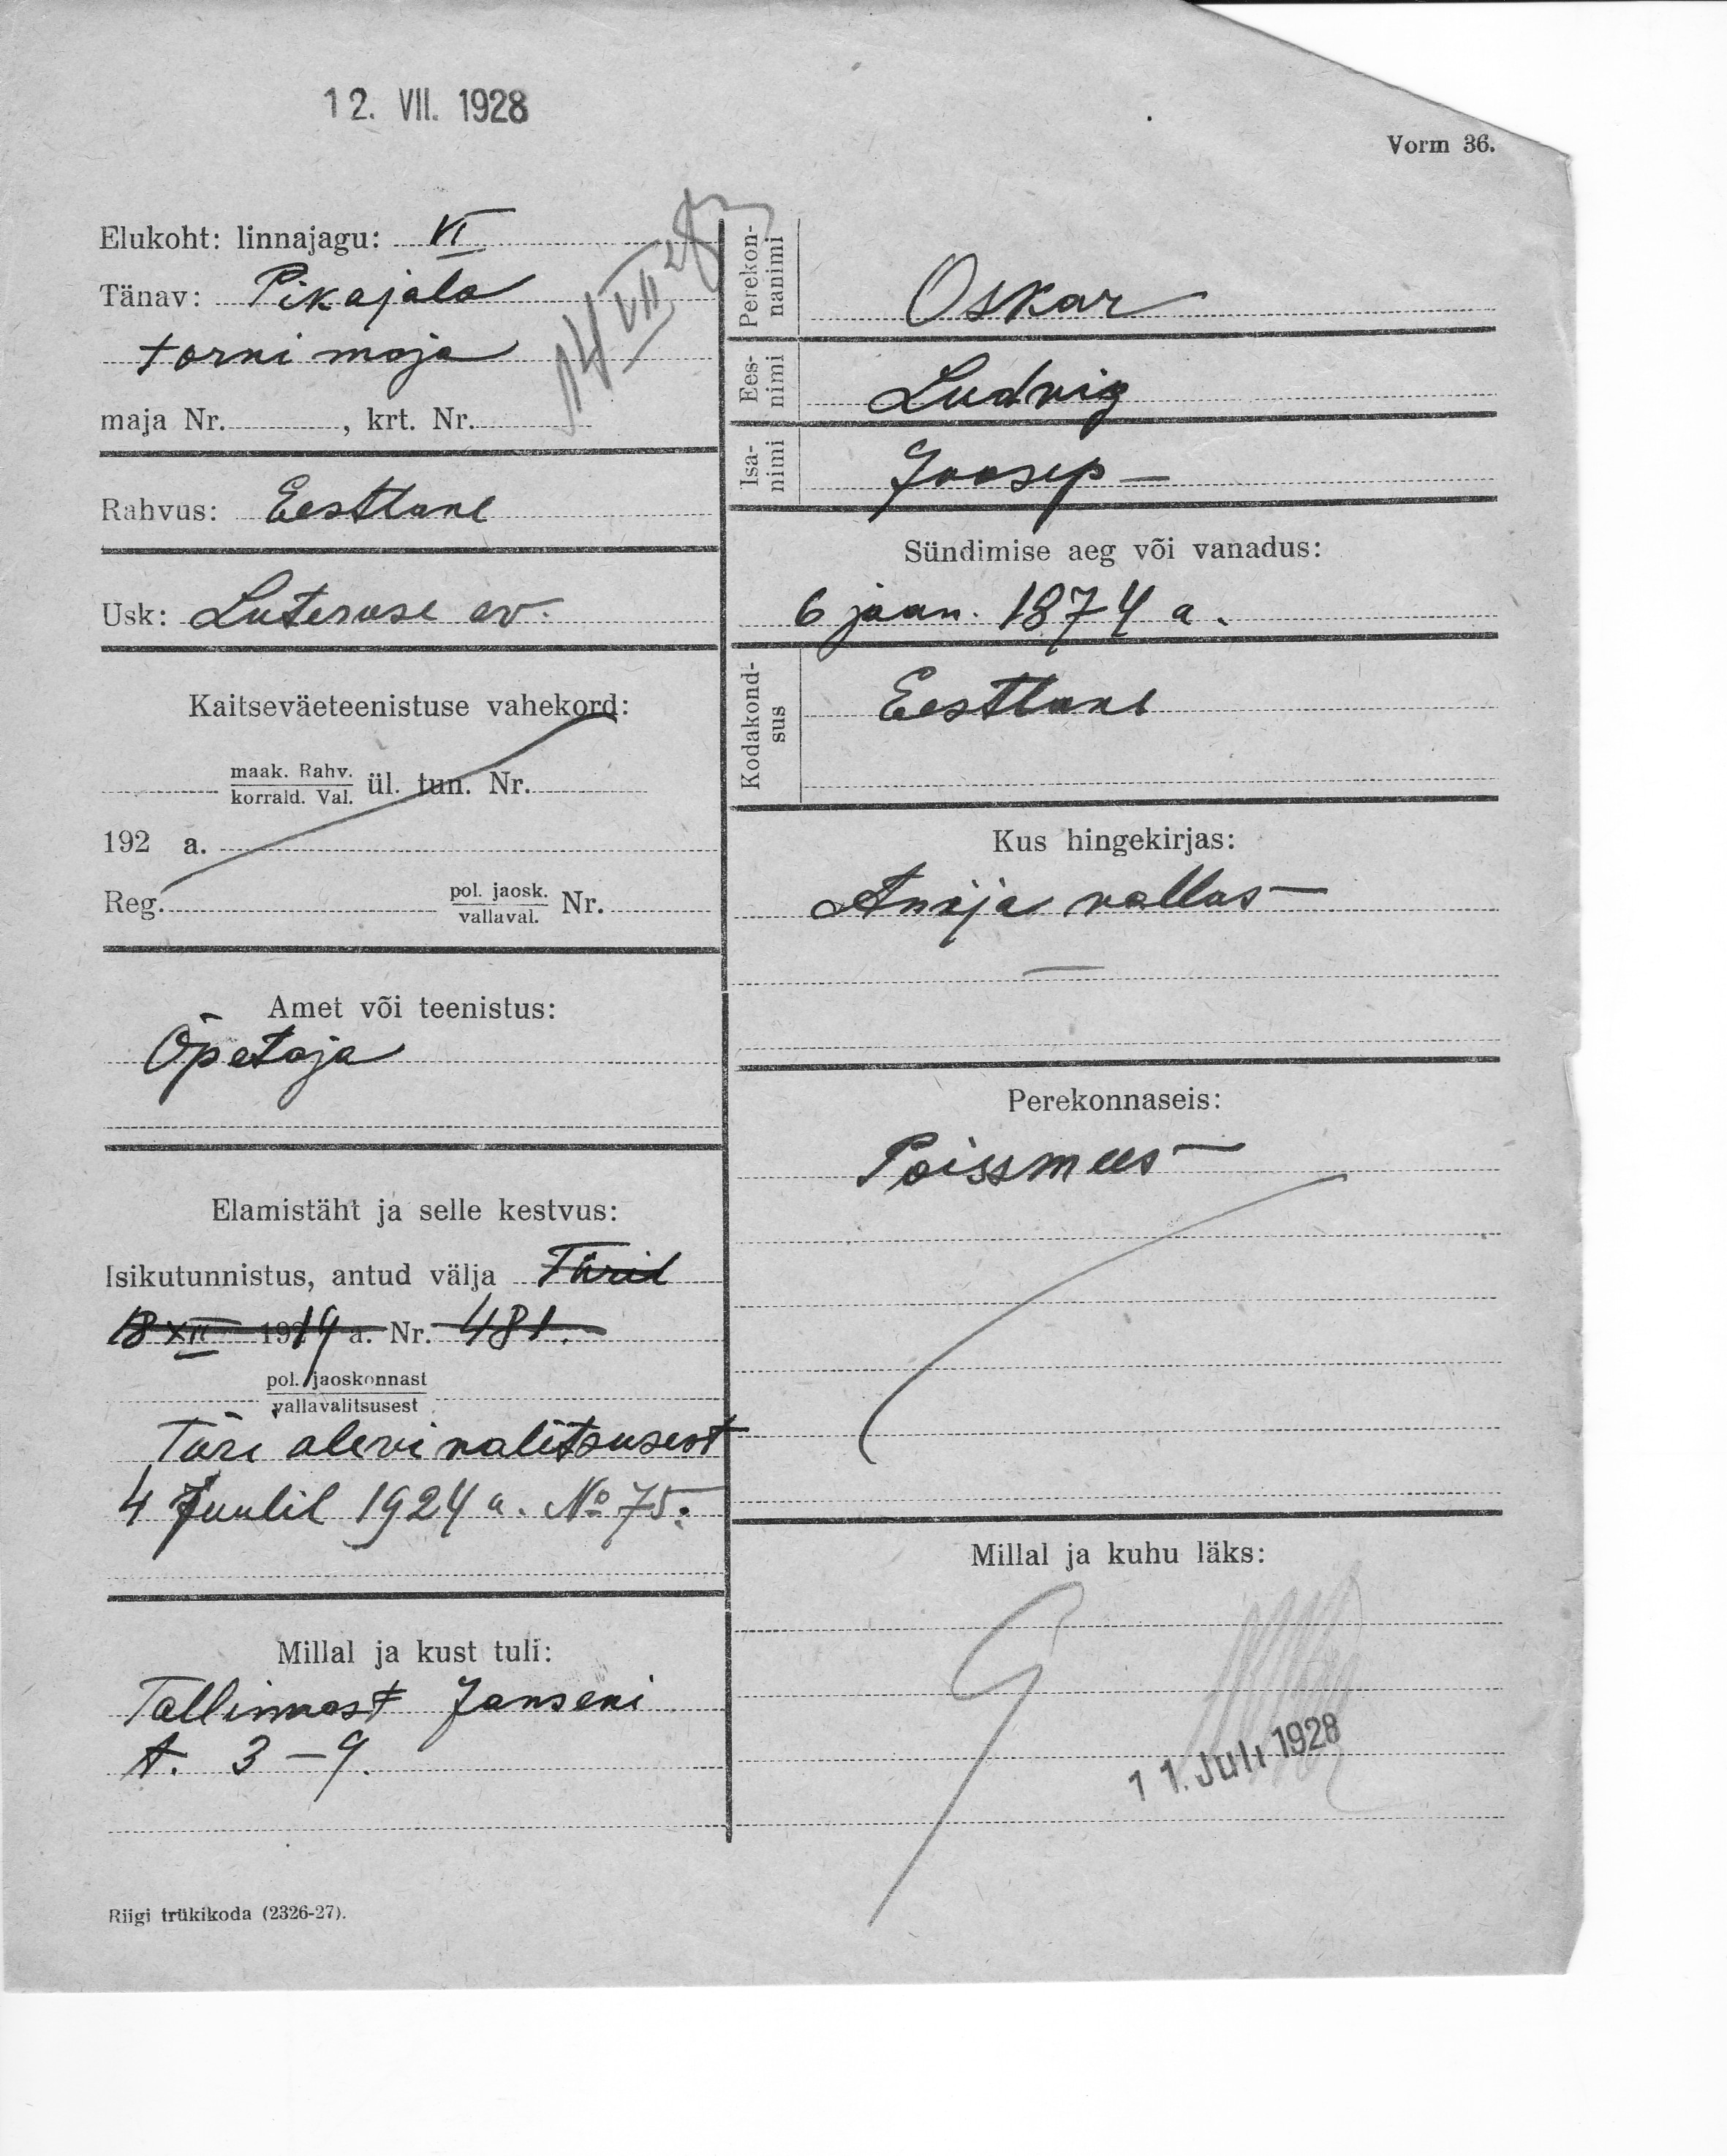 12. VII. 1928
Vorm 36.
14 VII 28
Elukoht: linnajagu: VI
Tänav: Pikajala
torni maja
maja Nr. , krt. Nr.
Rahvus: Eestlane
Usk: Luteruse ev.
Kaitseväeteenistuse vahekord:
maak. Rahv.
korrald. Val. ül. tun. Nr.
192 a.
Reg. pol. jaosk.
vallaval. Nr.
Amet või teenistus:
Õpetaja
Elamistäht ja selle kestvus:
Isikutunnistus, antud välja Türil
18 XII 1919 a. Nr. 481.
pol. jaoskonnast
vallavalitsusest
Türi alevi valitsusest
4 Juulil 1924 a. No 75.
Millal ja kust tuli:
Tallinnast Janseni
t. 3-9.
Riigi trükikoda (2326-27).
Perekon-
nanimi
Oskar
Ees-
nimi
Ludvig
Isa-
nimi
Joosep
Sündimise aeg või vanadus:
6 jaan. 1874 a.
Kodakond-
sus
Eestlane
Kus hingekirjas:
Anija vallas
Perekonnaseis:
Poissmees
Millal ja kuhu läks:
11. Juli 1928